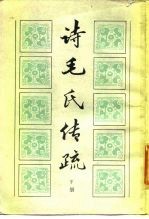 诗毛氏传疏
下册